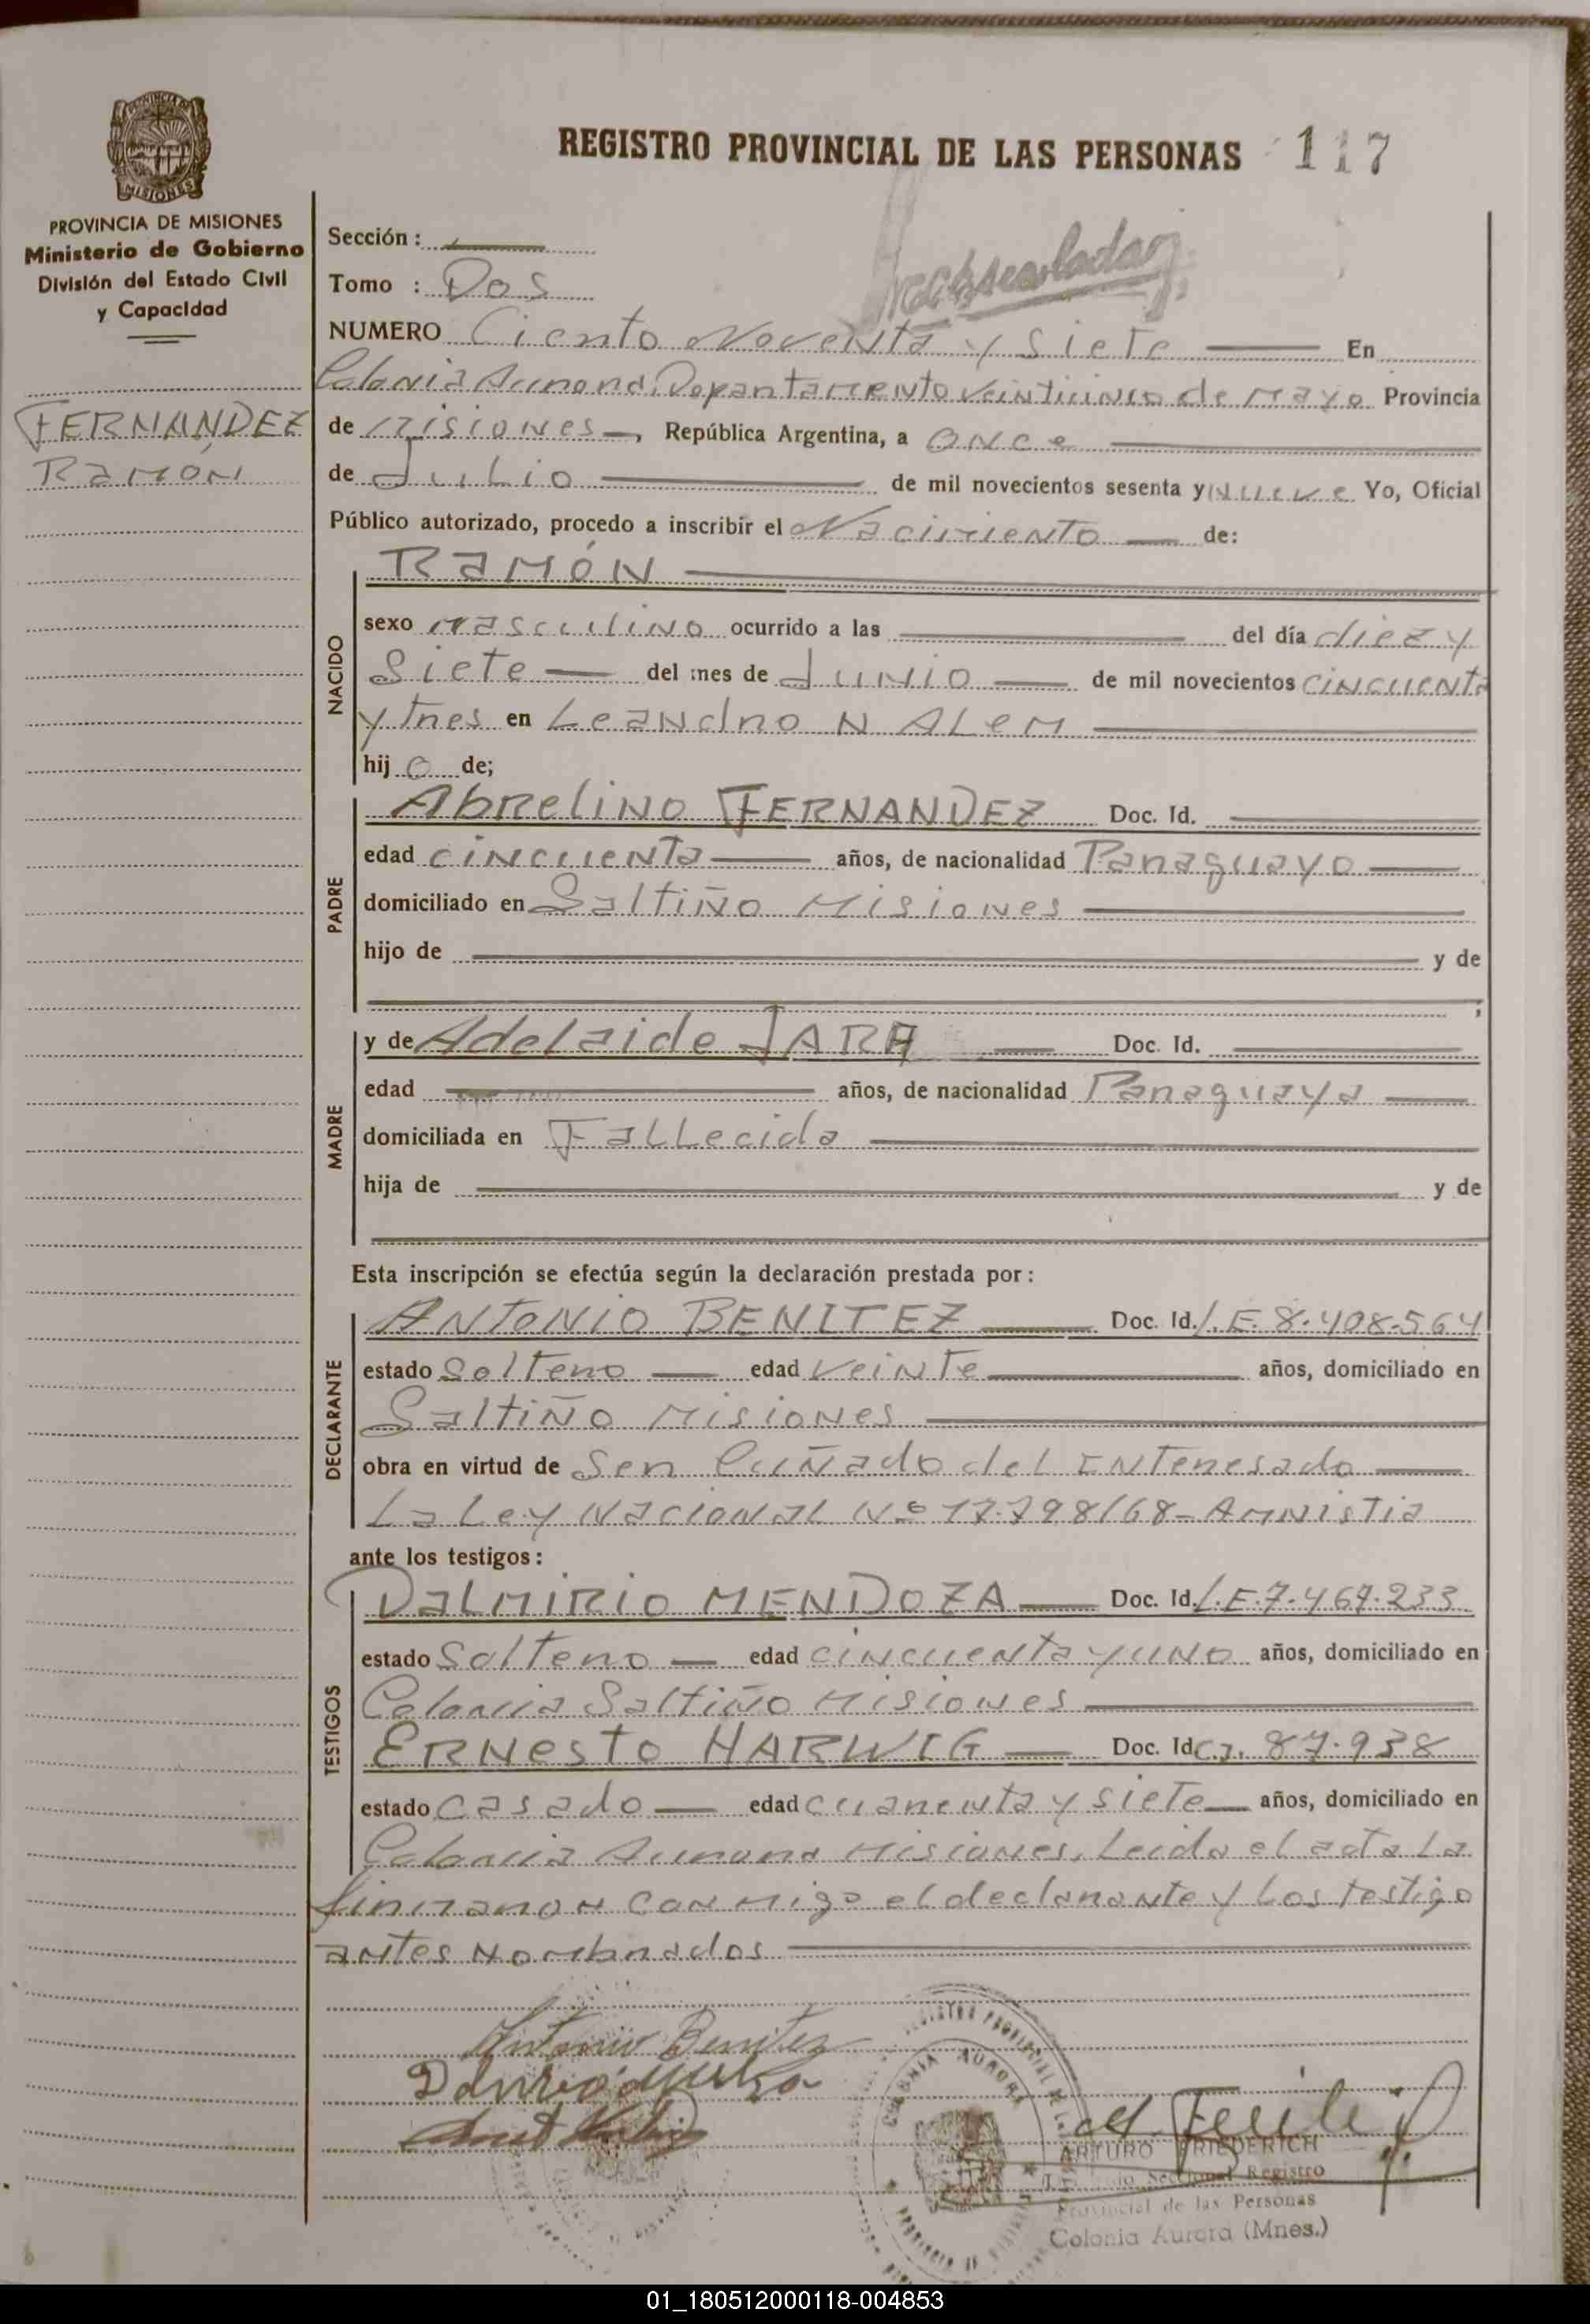 REGISTRO PROVINCIAL DE LAS PERSONAS 117
PROVINCIA DE MISIONES
MISIONES
PROVINCIA DE MISIONES
Ministerio de Gobierno
División del Estado Civil
y Capacidad
FERNANDEZ
RAMÓN
Sección :
Tomo : Dos
NUMERO Ciento Noventa y Siete En
Colonia Aurora, Departamento Veinticinco de Mayo Provincia
de Misiones, República Argentina, a once
de Julio de mil novecientos sesenta y nueve Yo, Oficial
Público autorizado, procedo a inscribir el Nacimiento de:
NACIDO
RAMÓN
sexo masculino ocurrido a las del día diez y
siete del mes de Junio de mil novecientos cincuenta
y tres en Leandro N ALem
hijo de;
PADRE
Abrelino FERNANDEZ Doc. Id.
edad cincuenta años, de nacionalidad Paraguayo
domiciliado en Saltiño Misiones
hijo de y de
MADRE
y de Adelaide JARA Doc. Id.
edad años, de nacionalidad Paraguaya
domiciliada en Fallecida
hija de y de
Esta inscripción se efectúa según la declaración prestada por :
DECLARANTE
ANTONIO BENITEZ Doc. Id. L.E. 8.408.564
estado Soltero edad veinte años, domiciliado en
Saltiño Misiones
obra en virtud de Ser Cuñado del Interesado
La Ley Nacional Nº 17.798/68 - Amnistia
ante los testigos :
TESTIGOS
DALMIRIO MENDOZA Doc. Id. L.E. 7.467.233
estado Soltero edad cincuenta y uno años, domiciliado en
Colonia Saltiño Misiones
ERNESTO HARWIG Doc. Id C.I. 87.938
estado Casado edad cuarenta y siete años, domiciliado en
Colonia Aurora Misiones, Leida el acta La
firmaron con migo el declarante y Los testigo
antes nombrados
Antonio Benitez
COLONIA AURORA
ARTURO FRIEDERICH
Seccional Registro
Provincial de las Personas
Colonia Aurora (Mnes.)
01_180512000118-004853